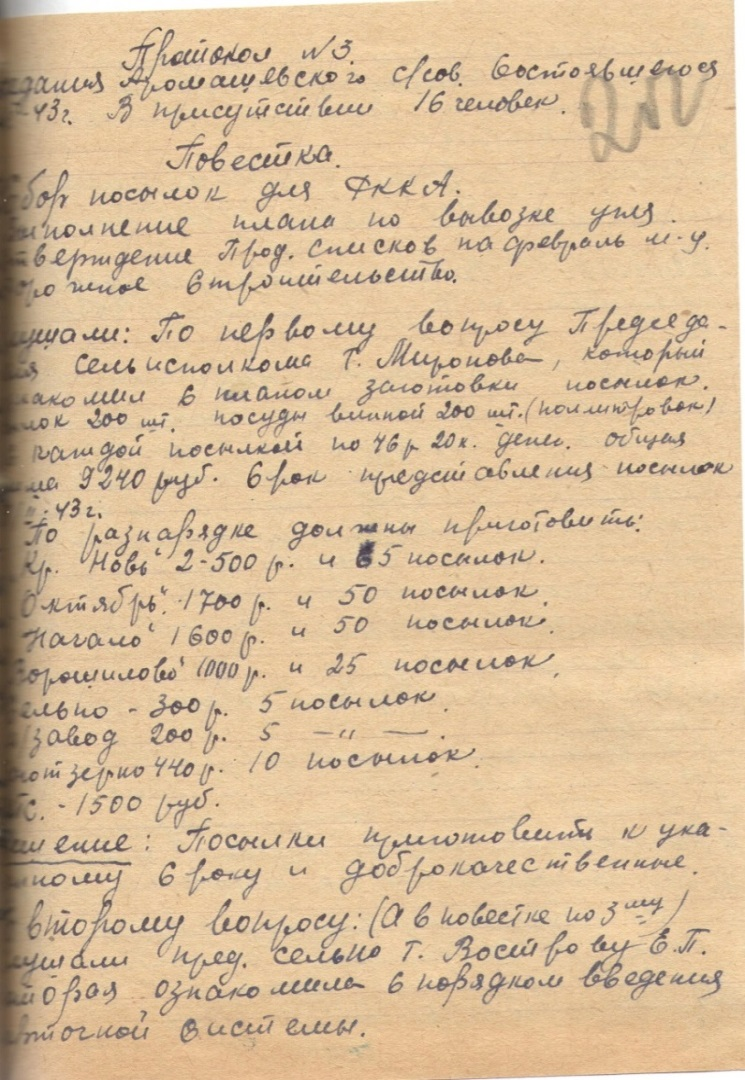 Протокол №3.
едания Аромашевского с/сов. состоявшегося
43г. В присутствии 16 человек.
Повестка.
бор посылок для РККА.
ыполнение плана по вывозке угля.
тверждение Прод. списков на февраль м-ц.
орожное строительство.
лушали: По первому вопросу Председа-
ля сельисполкома т. Миронова, который
накомил с планом заготовки посылок.
лок 200 шт. посуды винной 200 шт. (поллитровок)
каждой посылкой по 46р 20к. денег. общая
ма 9240 руб. Срок представления посылок
43г.
По разнарядке должны приготовить:
Кр. Новь" 2-500 р. и 65 посылок.
Октябрь" 1700 р. и 50 посылок.
Начало" 1600 р. и 50 посылок.
орошилово" 1000 р. и 25 посылок.
ельпо - 300 р. 5 посылок.
завод 200 р. 5 —"—.
отзерно 440 р. 10 посылок.
тс. - 1500 руб.
ешение: Посылки приготовить к ука-
нному сроку и доброкачественные.
второму вопросу: (А в повестке по 3му)
лушали пред. сельпо т. Вострову Е.П.
торая ознакомила с порядком введения
рточной системы.